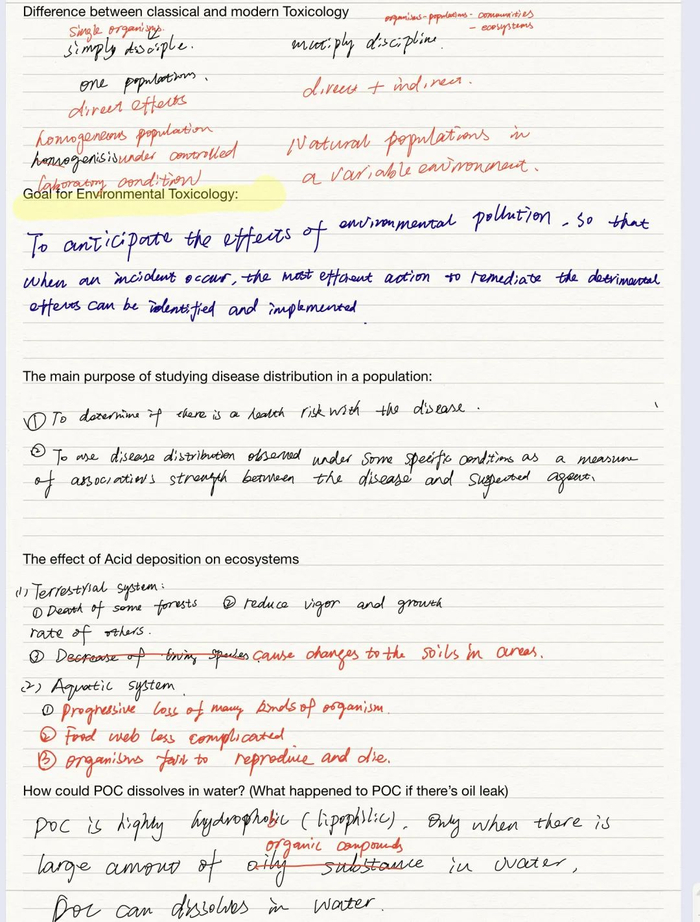 Difference between classical and modern Toxicology
organisms - populations - communities
- ecosystems
Single organism
simply disciple.
multiply discipline.
one populations.
direct + indirect.
direct effects
homogeneous population
Natural populations in
homogenisis under controlled
a variable environment.
laboratory condition
Goal for Environmental Toxicology:
To anticipate the effects of environmental pollution. so that
when an incident occur, the most efficient action to remediate the detrimental
effects can be identified and implemented.
The main purpose of studying disease distribution in a population:
① To determine if there is a health risk with the disease.
② To use disease distribution observed under some specific conditions as a measure
of associations strength between the disease and suspected agent.
The effect of Acid deposition on ecosystems
(1) Terrestrial system:
① Death of some forests ② reduce vigor and growth
rate of others.
③ Decrease of living species cause changes to the soils in areas.
(2) Aquatic system
① Progressive loss of many kinds of organism.
② Food web less complicated
③ organisms fail to reproduce and die.
How could POC dissolves in water? (What happened to POC if there's oil leak)
POC is highly hydrophobic (lipophilic). Only when there is
organic compounds
large amount of oily substance in water,
POC can dissolves in water.